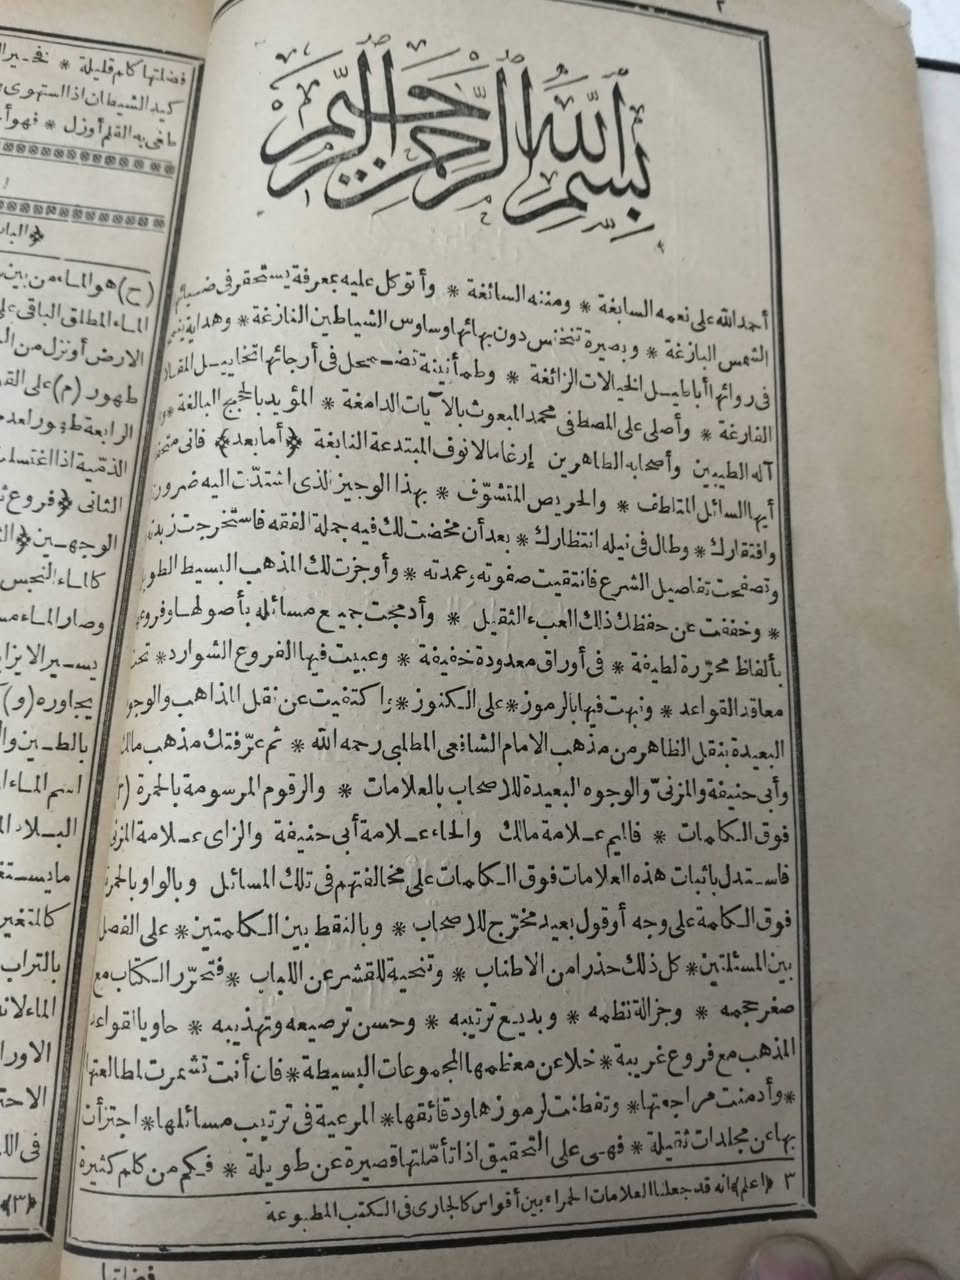 ٢
بسم الله الرحمن الرحيم
أحمد الله على نعمه السابغة * ومننه السائغة * وأتوكل عليه بمعرفة يستحقر في ضيائها
الشمس البازغة * وبصيرة تنخنس دون بهائها وساوس الشياطين النازغة * وهداية
في روائها أباطيل الخيالات الزائغة * وطمأنينة تضمحل في أرجائها تخاييل
الفارغة * وأصلى على المصطفى محمد المبعوث بالآيات الدامغة * المؤيد بالحجج البالغة *
آله الطيبين وأصحابه الطاهرين إرغاما لانوف المبتدعة النابغة ﴿أما بعد﴾ فانى
أيها السائل المتلطف * والحريص المتشوّف * بهذا الوجيز الذى اشتدّت اليه ضرورتك
وافتقارك * وطال فى نيله انتظارك * بعد أن مخضت لك فيه جملة الفقه فاستخرجت زبدته
وتصفحت تفاصيل الشرع فانتقيت صفوته وعمدته * وأوجزت لك المذهب البسيط الطويل
* وخففت عن حفظك ذلك العبء الثقيل * وأدمجت جميع مسائله بأصولها وفروعها
بألفاظ محرّرة لطيفة * فى أوراق معدودة خفيفة * وعبيت فيها الفروع الشوارد * تحت
معاقد القواعد * ونبهت فيها بالرموز * على الكنوز * واكتفيت عن نقل المذاهب والوجوه
البعيدة بنقل الظاهر من مذهب الامام الشافعى المطلبى رحمه الله * ثم عرّفتك مذهب مالك
وأبى حنيفة والمزنىّ والوجوه البعيدة للاصحاب بالعلامات * والرقوم المرسومة بالحمرة (٣)
فوق الكلمات * فالميم علامة مالك والحاء علامة أبى حنيفة والزاى علامة المزنى
فاستدل باثبات هذه العلامات فوق الكلمات على مخالفتهم فى تلك المسائل وبالواو بالحمرة
فوق الكلمة على وجه أو قول بعيد مخرّج للاصحاب * وبالنقط بين الكلمتين * على الفصل
بين المسئلتين * كل ذلك حذرا من الاطناب * وتنحية للقشر عن اللباب * فتحرّر الكتاب مع
صغر حجمه * وجزالة نظمه * وبديع ترتيبه * وحسن ترصيعه وتهذيبه * حاويا لقواعد
المذهب مع فروع غريبة * خلا عن معظمها المجموعات البسيطة * فان أنت تشمرت لمطالعتها
* وأدمنت مراجعتها * وتفطنت لرموزها ودقائقها * المرعية فى ترتيب مسائلها * اجتزأت
بها عن مجلدات ثقيلة * فهى على التحقيق اذا تأمّلتها قصيرة عن طويلة * فكم من كلم كثيرة
٣ ﴿اعلم﴾ انه قد جعلنا العلامات الحمراء بين أقواس كالجارى فى الكتب المطبوعة
فضلتها
فضلتها كلم قليلة *
كيد الشيطان اذا استهوى
طغى به القلم أو زل * فهو
(ح) هو الماء من بين
الماء المطلق الباقى على
الارض أو نزل من
طهور (م) على
الرابعة طهور
الذمّية اذا اغتسلت
الثانى ﴿فروع
الوجهين
كالماء النجس
وصار الماء
يسير الا يزا
يجاوره (و)
بالطين
اسم الماء
البلاد
ما يستغ
كالمتغير
بالتراب
الماء لانه
الاور
الاحت
فى
﴿٣﴾